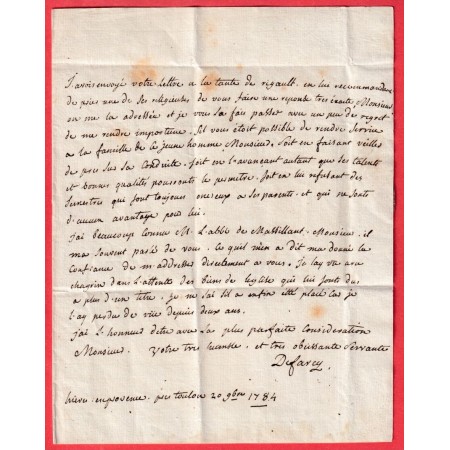 J'avois envoyé votre lettre a la tante de rigault. en lui recommandant
de puis une de ses religieuses de vous faire une reponse tres exacte, Monsieur
on me la adressée et je vous la fais passer avec un peu de regret
de me rendre importune. Sil vous étoit possible de rendre service
a la famille de ce jeune homme Monsieur. soit en faisant veiller
de pres sur sa Conduite. soit en l'avançant autant que ses talents
et bonnes qualités pouront le permetre. soit en lui refusant des
semestres qui sont toujours onereux a ses parents. et qui ne sont
d'aucun avantage pour lui.
j'ai beaucoup connu M. L'abbé de Massillant. Monsieur. il
ma souvent parlé de vous. ce quil m'en a dit ma donné la
Confiance de m'addresser directement a vous. je lay vu
chagrin dans l'attente des biens de leglise qui lui sont dus
a plus d'un titre. je ne sai sil a enfin été placé car je
l'ay perdu de vüe depuis deux ans.
j'ai l'honneur detre avec la plus parfaite consideration
Monsieur. votre tres humble. et tres obeissante servante
Defarcy
hieres en provence. pres toulon 20 9bre 1784